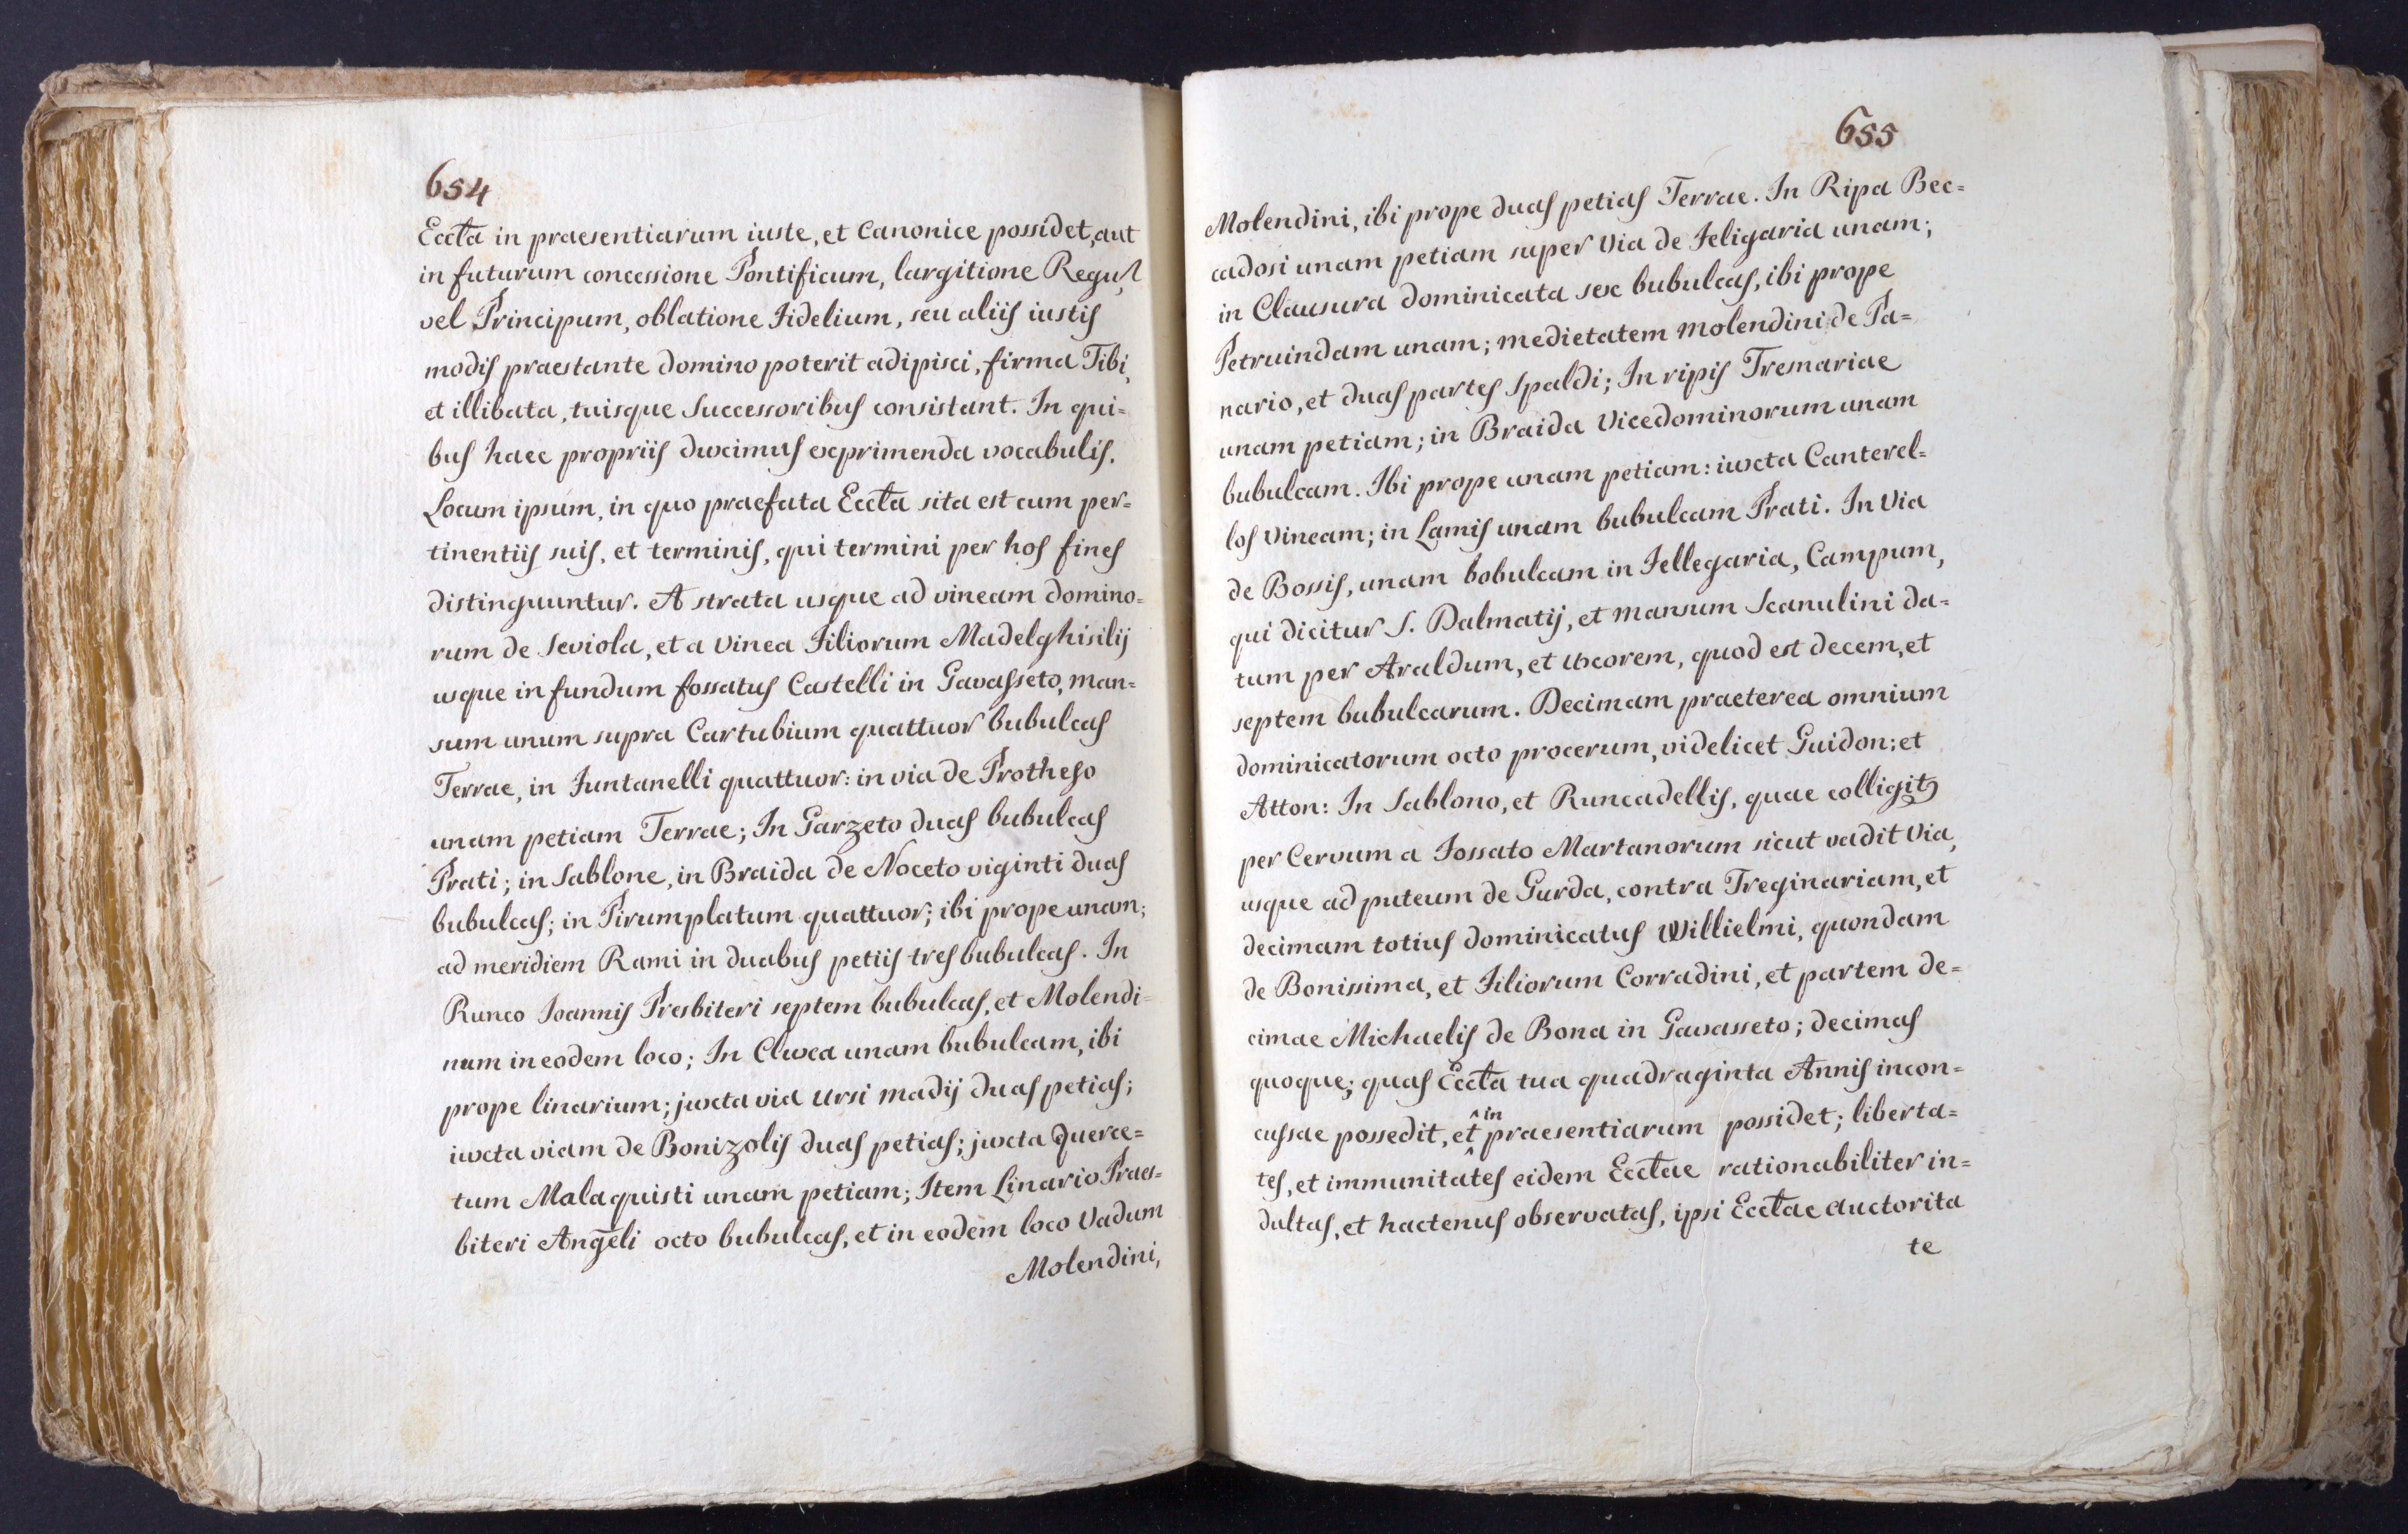 654
Eccl̄a in praesentiarum iuste, et Canonice possidet, aut
in futurum concessione Pontificum, largitione Regu,
vel Principum, oblatione Fidelium, seu aliis iustis
modis praestante domino poterit adipisci, firma Tibi,
et illibata, tuisque Successoribus consistant. In qui=
bus haec propriis duximus exprimenda vocabulis.
Locum ipsum, in quo praefata Eccl̄a sita est cum per=
tinentiis suis, et terminis, qui termini per hos fines
distinguuntur. A strata usque ad vineam domino=
rum de Seviola, et a Vinea Filiorum Madelghisilij
usque in fundum fossatus Castelli in Gavasseto, man=
sum unum supra Cartubium quattuor bubulcas
Terrae, in Funtanelli quattuor: in via de Protheso
unam petiam Terrae; In Garzeto duas bubulcas
Prati; in Sablone, in Braida de Noceto viginti duas
bubulcas; in Pirumplatum quattuor; ibi prope unam;
ad meridiem Rami in duabus petiis tres bubulcas. In
Runco Ioannis Presbiteri septem bubulcas, et Molendi=
num in eodem loco; In Cluxa unam bubulcam, ibi
prope linarium; juxta via Ursi madij duas petias;
iuxta viam de Bonizolis duas petias; juxta Querce=
tum Malaquisti unam petiam; Item Linario Praes=
biteri Angēli octo bubulcas, et in eodem loco Vadum
Molendini,
655
Molendini, ibi prope duas petias Terrae. In Ripa Bec=
cadosi unam petiam super Via de Feligaria unam;
in Clausura dominicata sex bubulcas, ibi prope
Petruindam unam; medietatem molendini de Pa=
nario, et duas partes Spaldi; In ripis Tresnariae
unam petiam; in Braida Vicedominorum unam
bubulcam. Ibi prope unam petiam: iuxta Canterel=
los Vineam; in Lamis unam bubulcam Prati. In Via
de Bossis, unam bobulcam in Fellegaria, Campum,
qui dicitur S. Dalmatij, et mansum Scanulini da=
tum per Araldum, et Uxorem, quod est decem, et
septem bubulcarum. Decimam praeterea omnium
dominicatorum octo procerum, videlicet Guidon: et
Atton: In Sablono, et Runcadellis, quae colligit
per Cervum a Fossato Martanorum sicut vadit Via,
usque ad puteum de Gurda, contra Treginariam, et
decimam totius dominicatus Willielmi, quondam
de Bonissima, et Filiorum Corradini, et partem de=
cimae Michaelis de Bona in Gavasseto; decimas
quoque; quas Eccl̄a tua quadraginta Annis incon=
cussae possedit, et ^in praesentiarum possidet; liberta=
tes, et immunitates eidem Eccl̄ae rationabiliter in=
dultas, et hactenus observatas, ipsi Eccl̄ae auctorita
te